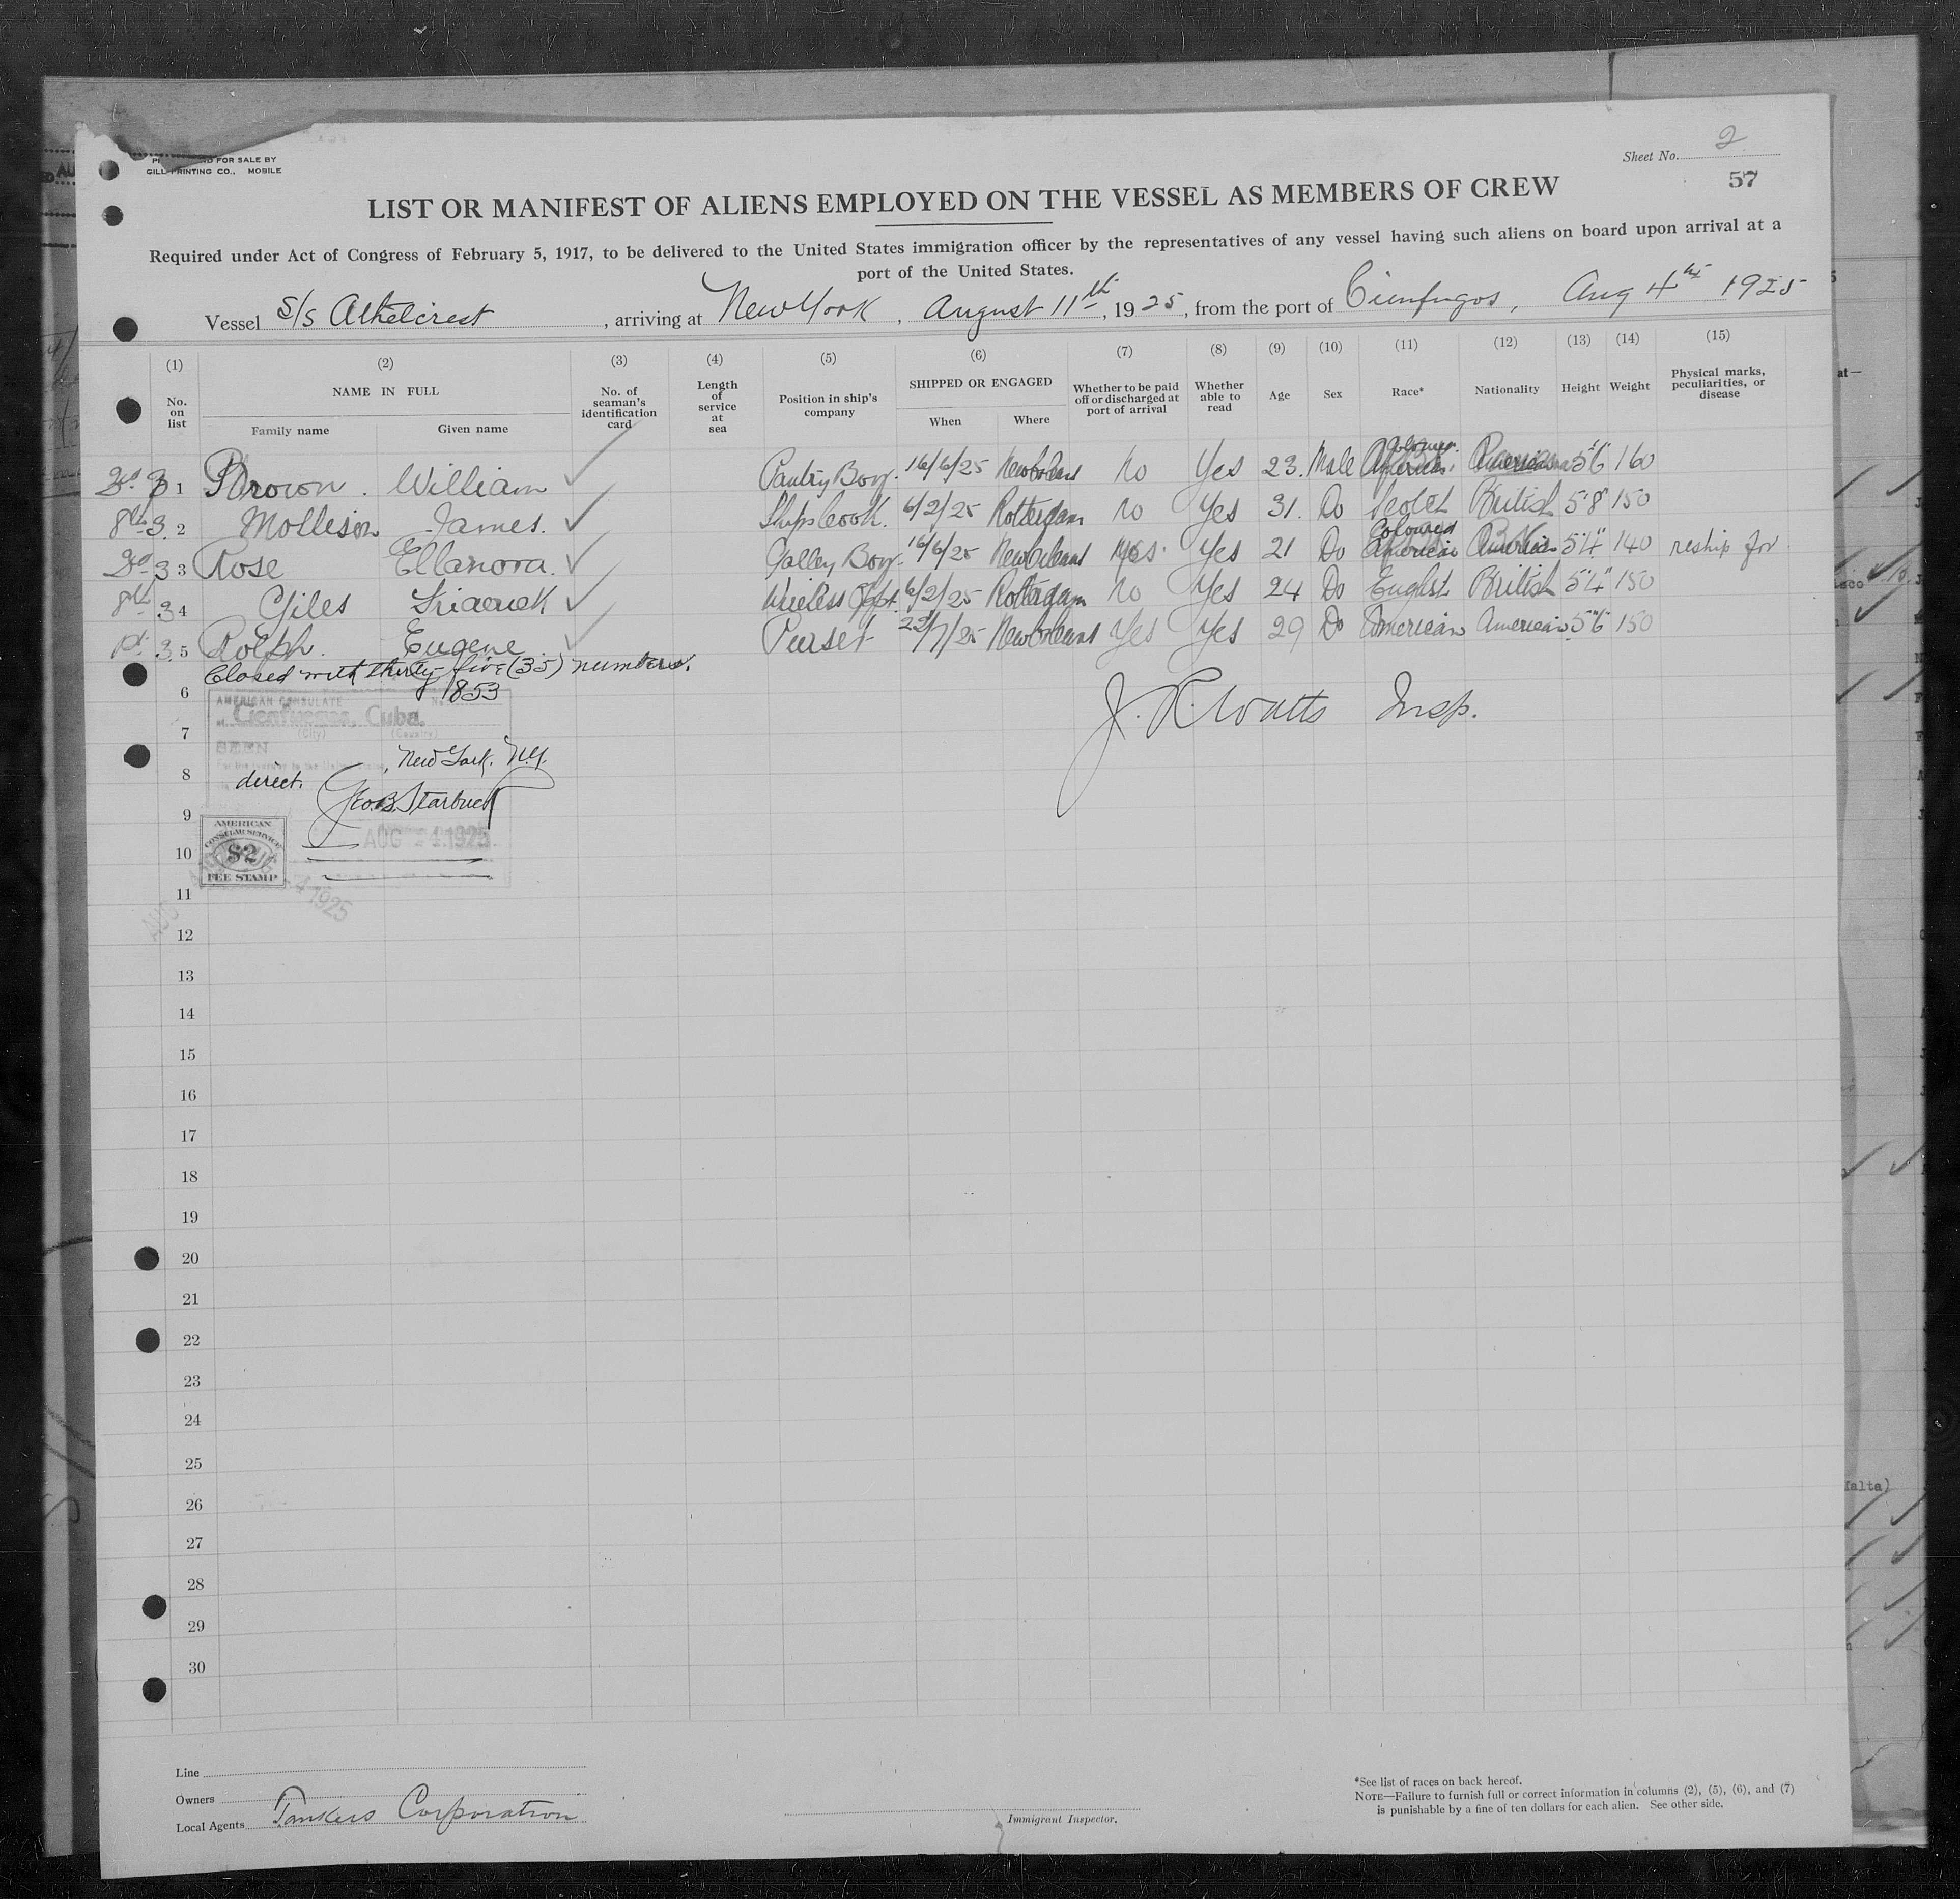 FOR SALE BY
GILL PRINTING CO., MOBILE
Sheet No. 2
57
LIST OR MANIFEST OF ALIENS EMPLOYED ON THE VESSEL AS MEMBERS OF CREW
Required under Act of Congress of February 5, 1917, to be delivered to the United States immigration officer by the representatives of any vessel having such aliens on board upon arrival at a
port of the United States.
Vessel S/s Athelcrest, arriving at New York, August 11th, 1925, from the port of Cienfugos, Aug 4th 1925
(1) (2) (3) (4) (5) (6) (7) (8) (9) (10) (11) (12) (13) (14) (15)
No. on list NAME IN FULL Family name Given name No. of seaman's identification card Length of service at sea Position in ship's company SHIPPED OR ENGAGED When Where Whether to be paid off or discharged at port of arrival Whether able to read Age Sex Race* Nationality Height Weight Physical marks, peculiarities, or disease
3 1 Brown. William Pantry Boy. 16/6/25 New Orleans No Yes 23. Male American 5'6" 160
3. 2 Mollison James. Ships Cook. 6/2/25 Rotterdam No Yes 31. Do Scotch British 5'8" 150
3 3 Rose Ellanora. Galley Boy. 16/6/25 New Orleans Yes. Yes 21 Do Coloured American American 5'4" 140 reship for
3 4 Giles Wireless Oppt. 6/2/25 Rotterdam No Yes 24 Do English British 5'4" 150
3 5 Rolph. Eugene 22/7/25 New Orleans Yes Yes 29 Do American American 5'6" 150
Closed with thirty-five (35) numbers.
6 1853
AMERICAN CONSULATE
at Cienfuegos, Cuba.
(City) (Country)
7
SEEN
New York, N.Y.
8 direct.
Geo. B. Starbuck
J. R. Watts Insp.
9
AUG -4 1925
AMERICAN
CONSULAR SERVICE
$2
FEE STAMP
10
11
AUG -4 1925
12
13
14
15
16
17
18
19
20
21
22
23
24
25
26
27
28
29
30
Line
Owners
Local Agents Tankers Corporation
Immigrant Inspector.
*See list of races on back hereof.
NOTE—Failure to furnish full or correct information in columns (2), (5), (6), and (7)
is punishable by a fine of ten dollars for each alien. See other side.